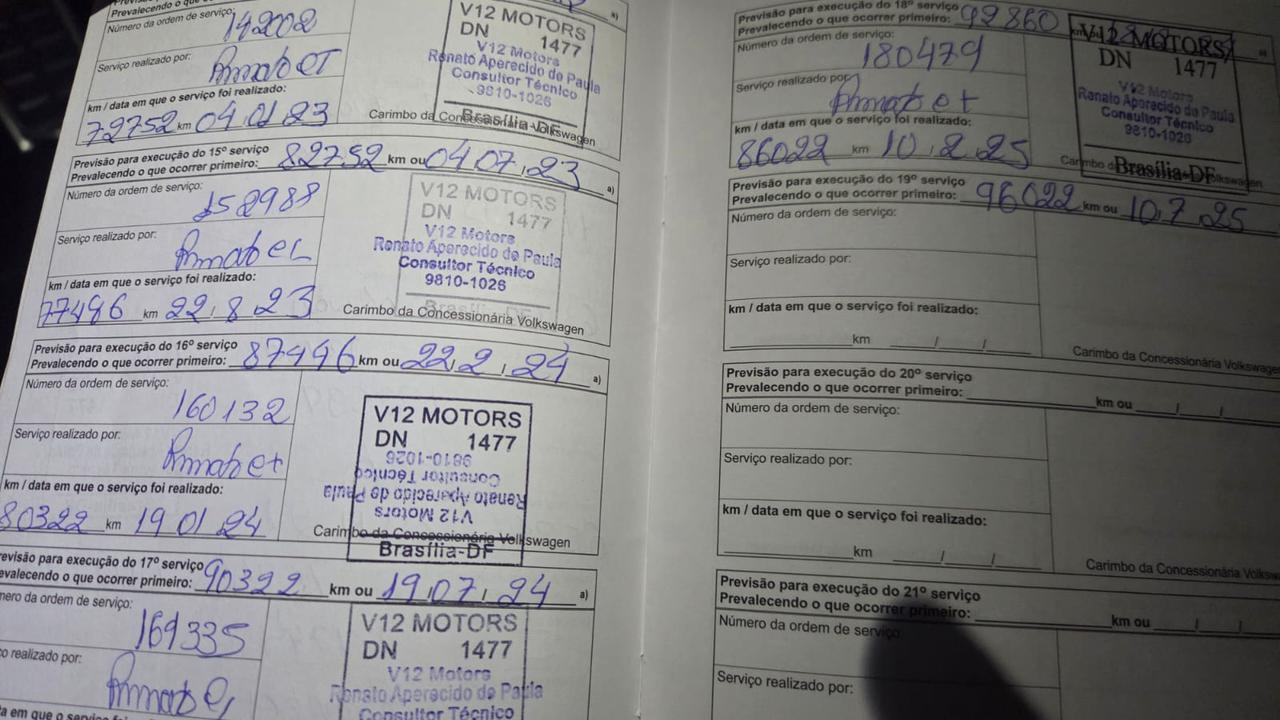 Prevalecendo o que a)
Número da ordem de serviço:
142002
Serviço realizado por:
km / data em que o serviço foi realizado:
72752 km 04.01.23
V12 MOTORS
DN 1477
V12 Motors
Renato Aparecido de Paula
Consultor Técnico
9810-1026
Brasília-DF
Carimbo da Concessionária Volkswagen
Previsão para execução do 15º serviço
Prevalecendo o que ocorrer primeiro: 82752 km ou 04,07,23 a)
Número da ordem de serviço:
152988
Serviço realizado por:
km / data em que o serviço foi realizado:
77496 km 22,8,23
V12 MOTORS
DN 1477
V12 Motors
Renato Aparecido de Paula
Consultor Técnico
9810-1026
Brasília-DF
Carimbo da Concessionária Volkswagen
Previsão para execução do 16º serviço
Prevalecendo o que ocorrer primeiro: 87496 km ou 22,2,24 a)
Número da ordem de serviço:
160132
Serviço realizado por:
km / data em que o serviço foi realizado:
80322 km 19 01 24
V12 MOTORS
DN 1477
9810-1026
Consultor Técnico
Renato Aparecido de Paula
V12 Motors
Carimbo da Concessionária Volkswagen
Brasília-DF
revisão para execução do 17º serviço
evalecendo o que ocorrer primeiro: 90322 km ou 19,07,24 a)
mero da ordem de serviço:
169335
ço realizado por:
V12 MOTORS
DN 1477
V12 Motors
Renato Aparecido de Paula
Consultor Técnico
Previsão para execução do 18º serviço
Prevalecendo o que ocorrer primeiro: 99860
Número da ordem de serviço:
180479
Serviço realizado por:
km / data em que o serviço foi realizado:
86022 km 10,2,25
V12 MOTORS
DN 1477
V12 Motors
Renato Aparecido de Paula
Consultor Técnico
9810-1026
Brasília-DF
Previsão para execução do 19º serviço
Prevalecendo o que ocorrer primeiro: 96022 km ou 10,7,25
Número da ordem de serviço:
Serviço realizado por:
km / data em que o serviço foi realizado:
km / /
Carimbo da Concessionária Volkswagen
Previsão para execução do 20º serviço
Prevalecendo o que ocorrer primeiro: km ou / /
Número da ordem de serviço:
Serviço realizado por:
km / data em que o serviço foi realizado:
km / /
Carimbo da Concessionária Volksw
Previsão para execução do 21º serviço
Prevalecendo o que ocorrer primeiro: km ou / /
Número da ordem de serviço:
Serviço realizado por: